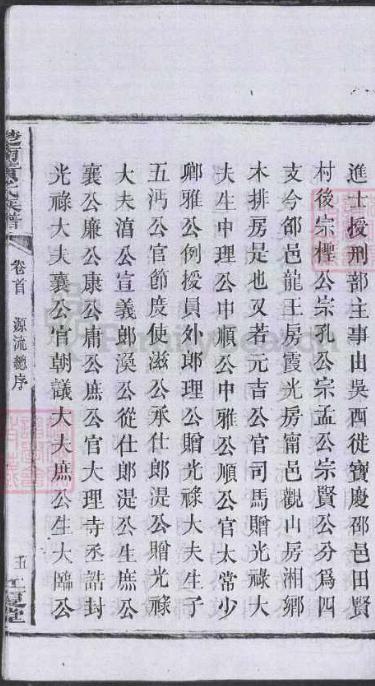 進士授刑部主事由吳西徙寶慶邵邑田賢
村後宗樫公宗孔公宗孟公宗賢公分爲四
支今邵邑龍王房霞光房甯邑觀山房湘鄉
木排房是也又若元吉公官司馬贈光祿大
夫生中理公中順公中雅公順公官太常少
卿雅公例授員外郎理公贈光祿大夫生子
五沔公官節度使滋公承仕郎湜公贈光祿
大夫湻公宣義郎渙公從仕郎湜公生庶公
襄公廉公康公庸公庶公官大理寺丞誥封
光祿大夫襄公官朝議大夫庶公生大臨公
氏族譜
卷首
源流總序
五
堂